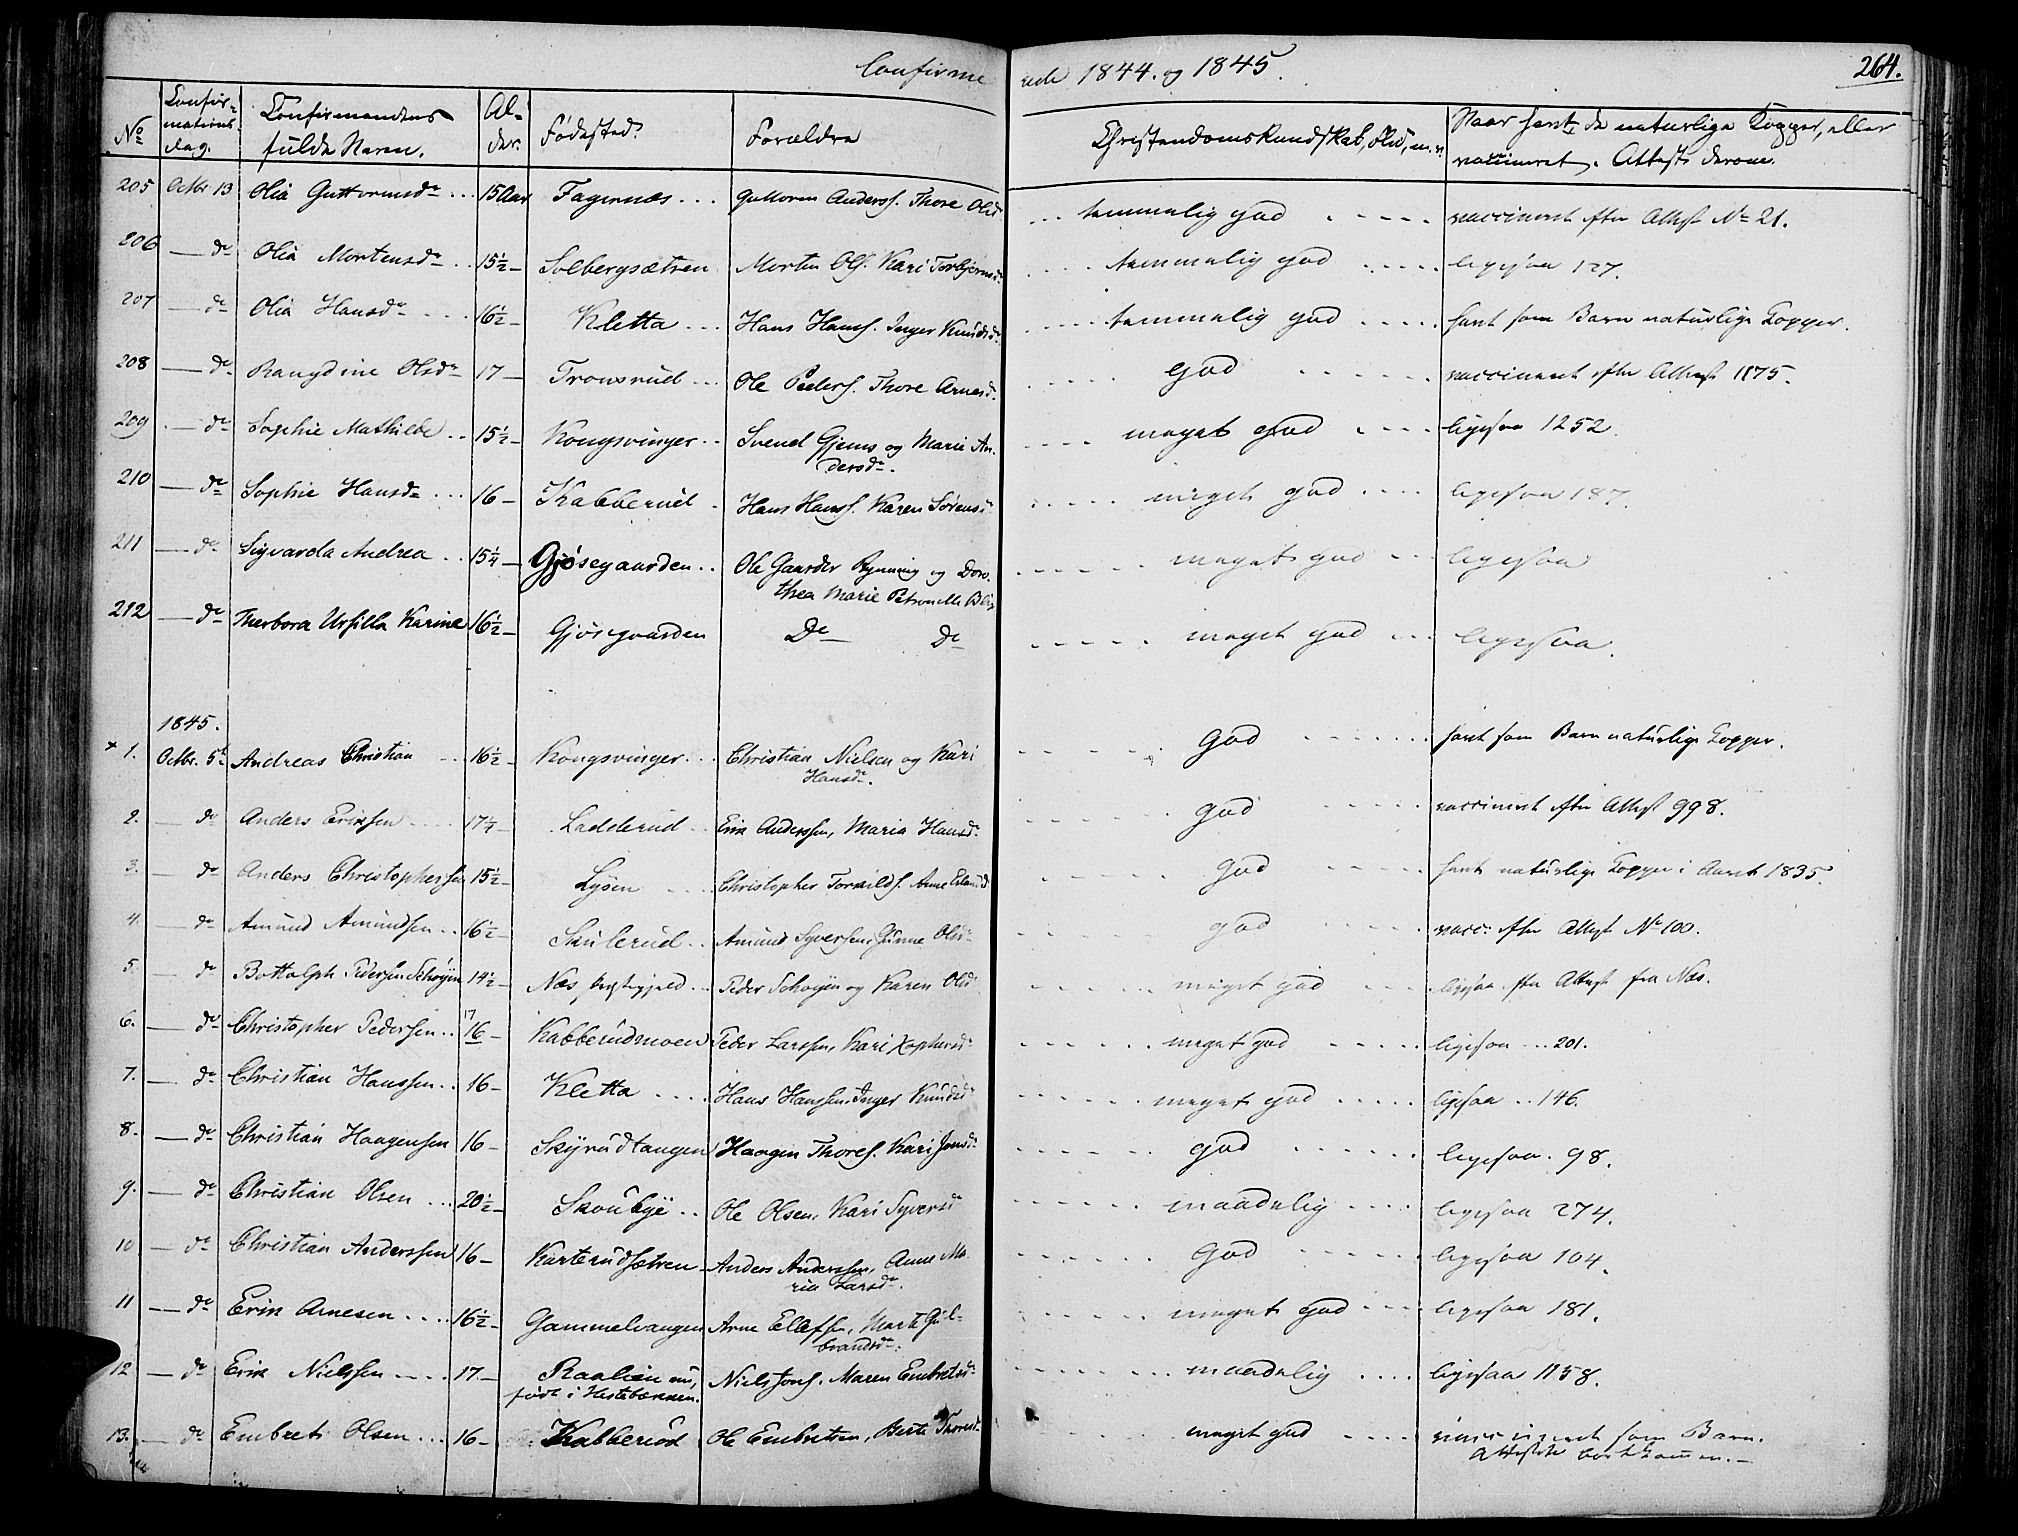 Confirme rede 1844. og 1845.
264.
No Confirmations dag. Confirmandens fulde Navn. Alder. Fødested. Forældre Christendomskundskab, Flid, m. v. Naar havt de naturlige Kopper, eller vaccineret. Attests derom.
205 Octbr 13 Olia Guttormsdr 15 Aar Fagernæs Guttorm Anderss. Thore Olsd temmelig god vaccineret efter Attest No 21.
206 — do Olia Mortensdr 15½ — Solbergsætren Morten Ols. Kari Torbjørnsdr temmelig god ligesaa 127.
207 — do Olia Hansdr 16½ — Kletta Hans Hanss. Inger Knudsdr temmelig god havt som Barn naturlige Kopper.
208 — do Rangdine Olsdr 17 — Tronsrud Ole Peders. Thore Arnesdr god vaccineret efter Attest 1175.
209 — do Sophie Mathilde 15½ — Kongsvinger Svend Gjems og Marie An-
dersdr. meget god ligesaa 1252.
210 — do Sophie Hansdr 16 — Kabberud Hans Hanss. Karen Sørensd meget god ligesaa 187.
211 — do Sigvarda Andrea 15¼ — Gjøsegaarden Ole Gaarder Rynning og Doro-
thea Marie Petronelle Blix meget god ligesaa
212 — do Therbora Ursilla Karine 16½ — Gjøsegaarden Do do meget god ligesaa.
1845.
+ 1. Octbr. 5t Andreas Christian 16½ — Kongsvinger Christian Nielsen og Kari
Hansdr. god havt som Barn naturlige Kopper.
2. — do Anders Eriksen 17 — Ladderud Erik Anderssen, Maria Hansdr god vaccineret efter Attest 998.
3. — do Anders Christophersen 15½ — Lysen Christopher Torkilds. Anne god havt naturlige Kopper i Aaret 1835.
4. — do Amund Amundsen 16½ — Skulerud Amund Syversen, Gunne Olsdr god vacc: efter Attest No 100.
5. — do Bottolph Pedersen Schøyen 14½ — Næs Præstegjeld Peder Schøyen og Karen Olsd meget god ligesaa efter Attest fra Næs.
6. — do Christopher Pedersen 17 16 — Kabberudmoen Peder Larssen, Kari Xophersdr meget god ligesaa 201.
7. — do Christian Hanssen 16 — Kletta Hans Hanssen, Inger Knudsd meget god ligesaa 146.
8. — do Christian Haagensen 16 — Skyrudtangen Haagen Thores. Kari Jonsdr god ligesaa 98.
9. — do Christian Olsen 20½ — Skoubye Ole Olsen, Kari Syversd maadelig ligesaa 274.
10 — do Christian Anderssen 16 — Karterudsætren Anders Anderssen, Anne Ma-
ria Larsdr. God ligesaa 104.
11 — do Erik Arnesen 16½ — Gammelvangen Arne Ellefsen, Marte Gul-
brandsdr. meget god ligesaa 181.
12 — do Erik Nielssen 17 — Raalien nu,
født i Niels Jons. Maren Embretsdr maadelig ligesaa 1158.
13. — do Embret Olsen 16 — Kabberud Ole Embretsen, Berte Thoresdr meget god vaccineret som Barn.
Attesten bortkommen. —